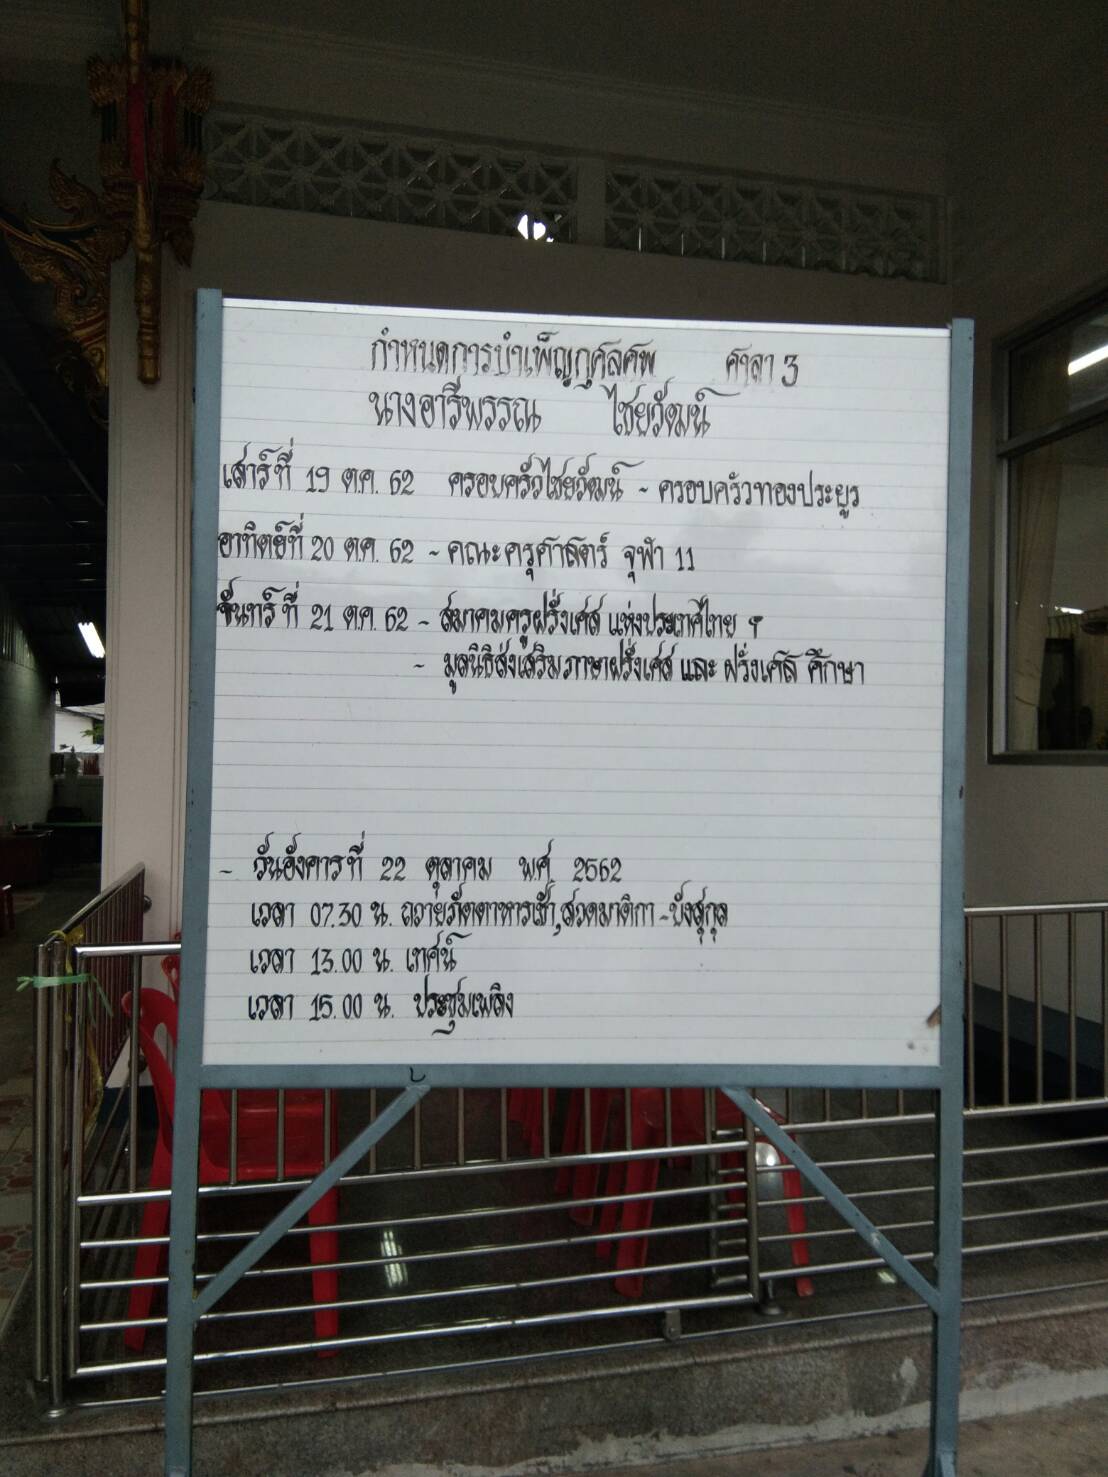 กำหนดการบำเพ็ญกุศลศพ ศาลา 3
นางอารีพรรณ ไชยวัฒน์
เสาร์ที่ 19 ตค. 62 ครอบครัวไชยวัฒน์ - ครอบครัวทองประยูร
อาทิตย์ที่ 20 ตค. 62 - คณะครุศาสตร์ จุฬา 11
จันทร์ที่ 21 ตค. 62 - สมาคมครูฝรั่งเศส แห่งประเทศไทย ฯ
- มูลนิธิส่งเสริมภาษาฝรั่งเศส และ ฝรั่งเศส ศึกษา
- วันอังคารที่ 22 ตุลาคม พ.ศ. 2562
เวลา 07.30 น. ถวายภัตตาหารเช้า, สวดมาติกา - บังสุกุล
เวลา 13.00 น. เทศน์
เวลา 15.00 น. ประชุมเพลิง